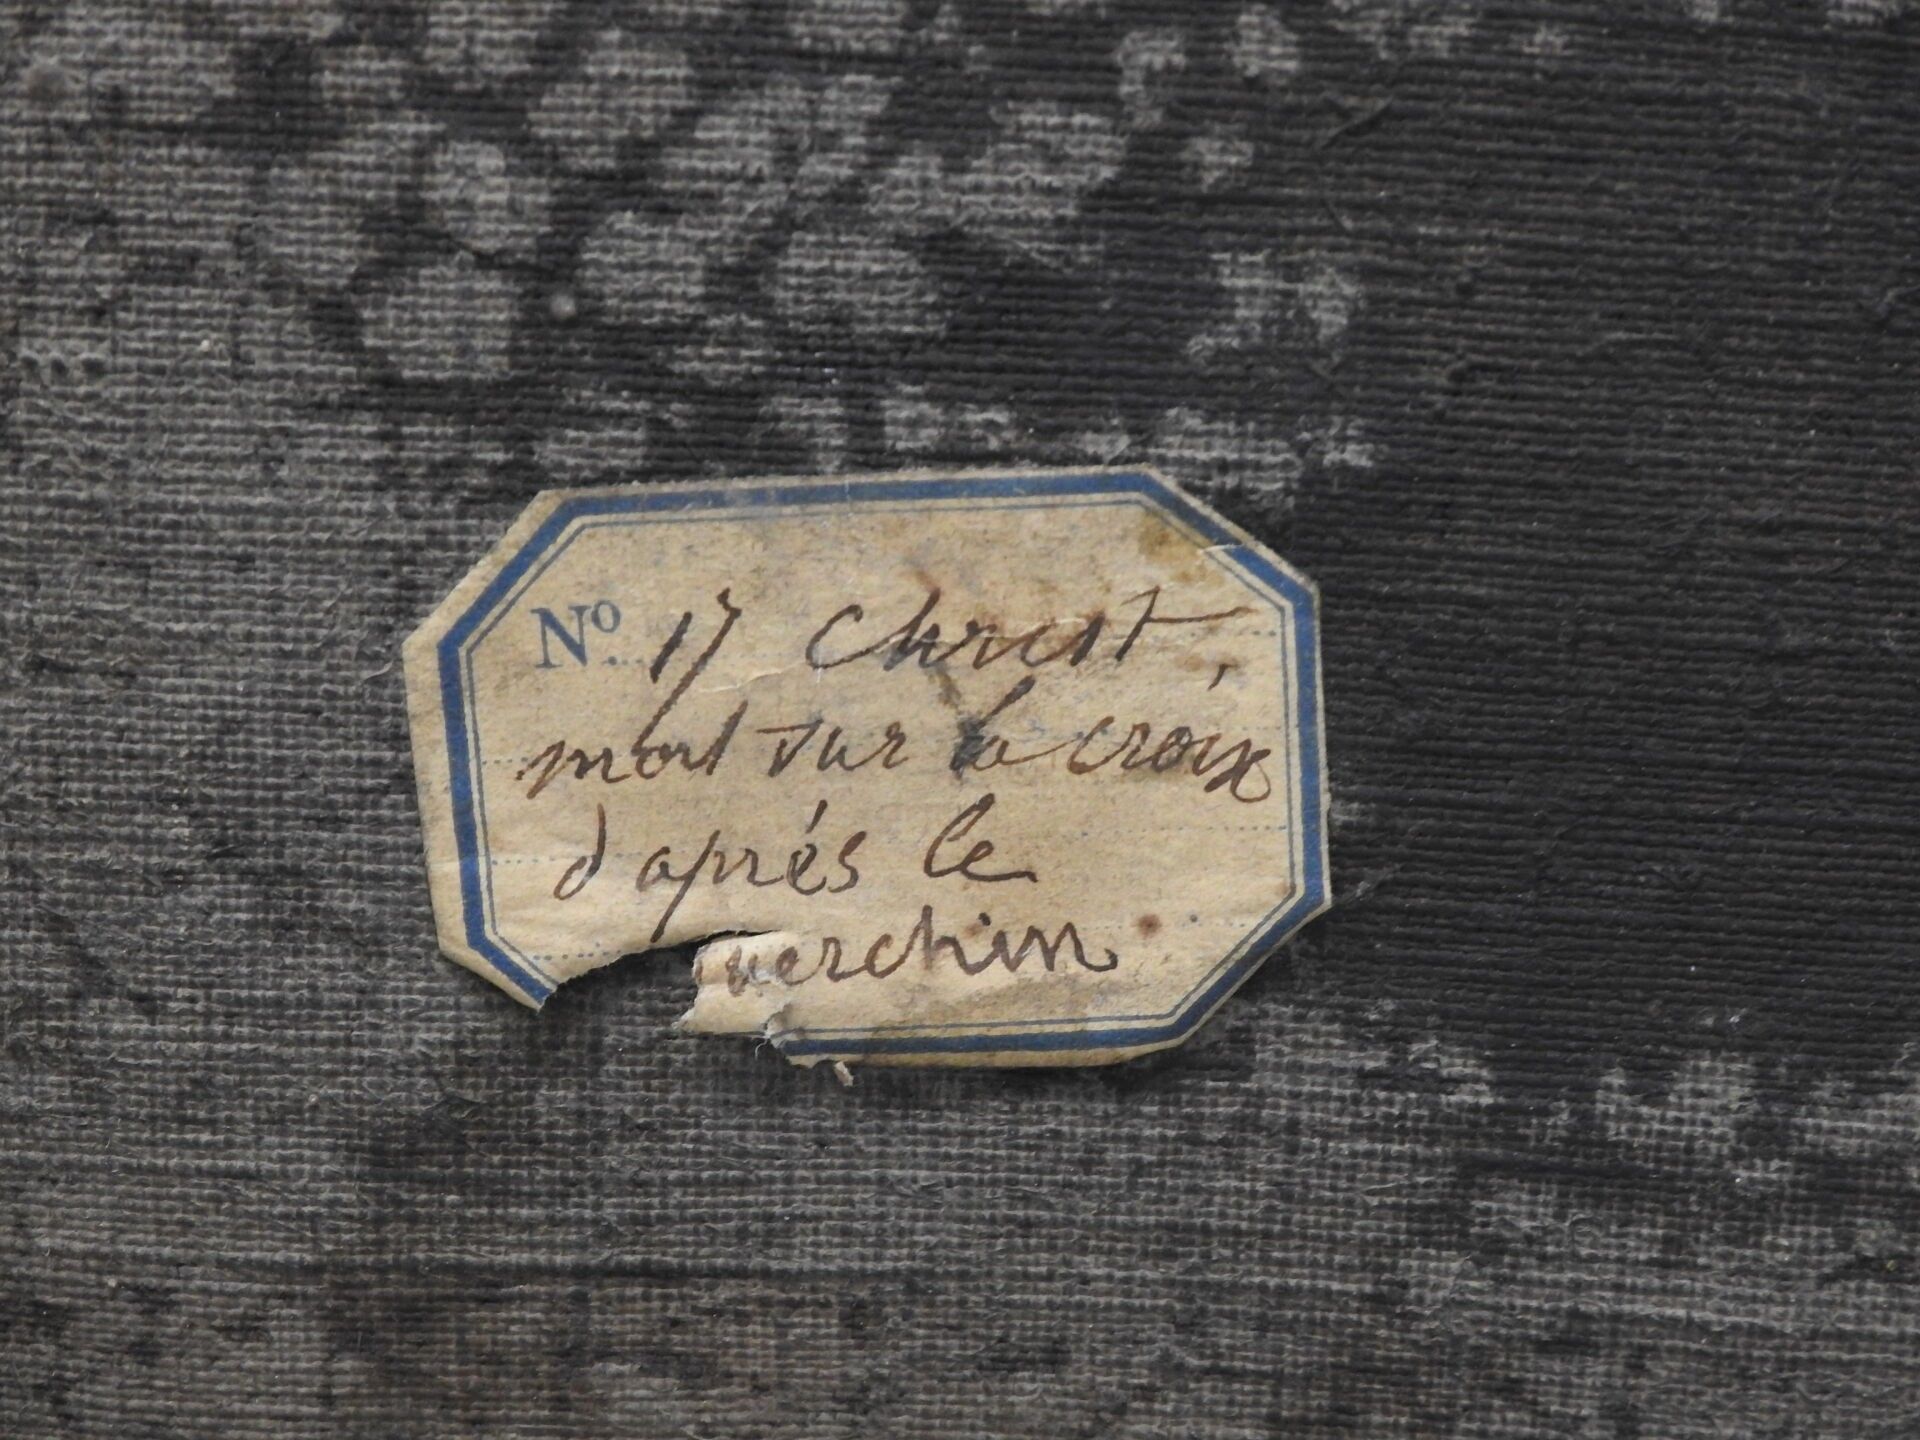 No 17 Christ,
mort sur la croix
d'aprés le
uerchin